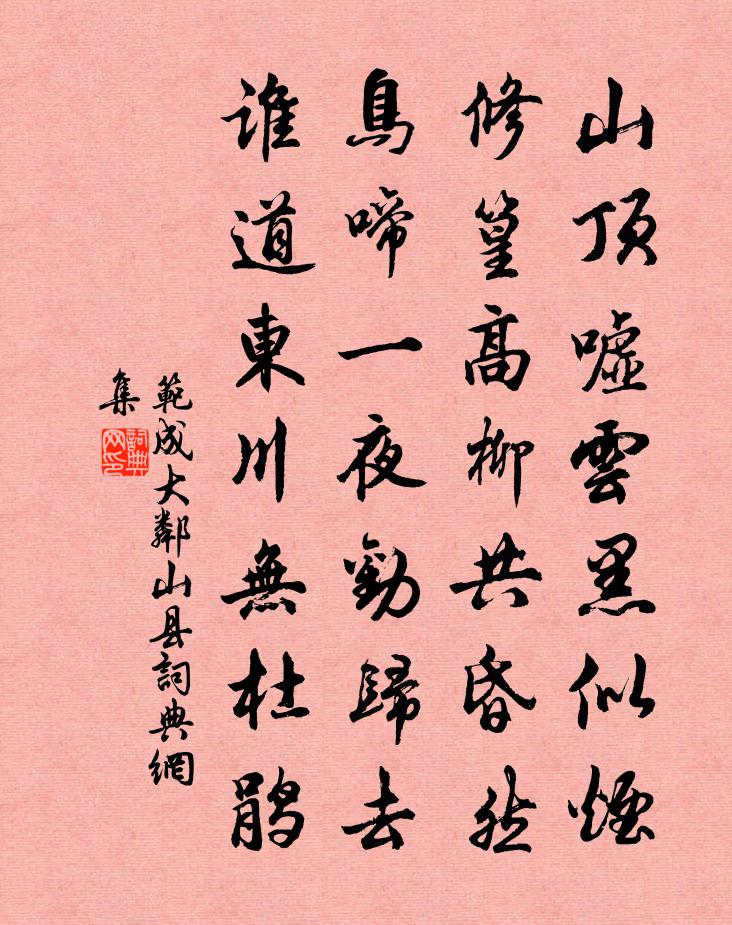 山顶嘘雲黑似煙
修篁高柳共昏然
鳥啼一夜勸歸去
谁道東川無杜鹃
範成大鄰山县詞典網
集
詞典
网印